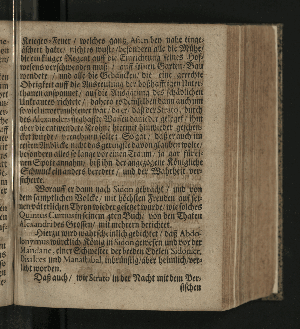 Krieges-Feuer / welches gantz Asien bey nahe einge-
äschert hatte / nichts wuste / besondern alle die Mühe /
die ein kluger Regent auff die Einrichtung seines Hof-
wesens verschwenden muß / auff seinen Garten-Bau
wendete / und alle die Gedancken / die eine gerechte
Obrigkeit auff die Ausrottung der boßhafftigen Unter-
thanen anspannet / auf die Ausjagung des schädlichen
Unkrautes richtete / daher es demselben dann auch um
so viel unvermuhteter war / daß
des Alexanders sieghaffte Waffen darnieder geleget / ihm
aber die entwendete Krohne hiermit hinwieder geschen-
cket würde / vernehmen ließ: Sogar / daß er auch im
ersten Anblicke nicht das geringste davon glauben wolte /
besondern alles so lange vor einen Traum / ja gar für ei-
nen Spott annahm / biß ihn der angezogene Königliche
Schmuck ein anders beredete / und der Wahrheit ver-
sicherte.
Worauff er dann nach Sidon gebracht / und von
dem sämptlichen Volcke / mit höchsten Freuden auf sei-
nen väterlichen Thron wieder gesetzet wurde / wie solches
Quintus Curtius in seinem 4ten Buch / von den Thaten
Alexandri des Grossen / mit mehrern berichtet.
Hier zu wird wahrscheinlich gedichtet / daß Abdo-
lonymus würcklich König in Sidon gewesen und vor der
Mandane / einer Schwester der beeden Edelen Sidonier,
inbrünstig / aber heimlich / ver-
liebt worden.
Daß auch / wie Strato in der Nacht mit dem Per-
sischen